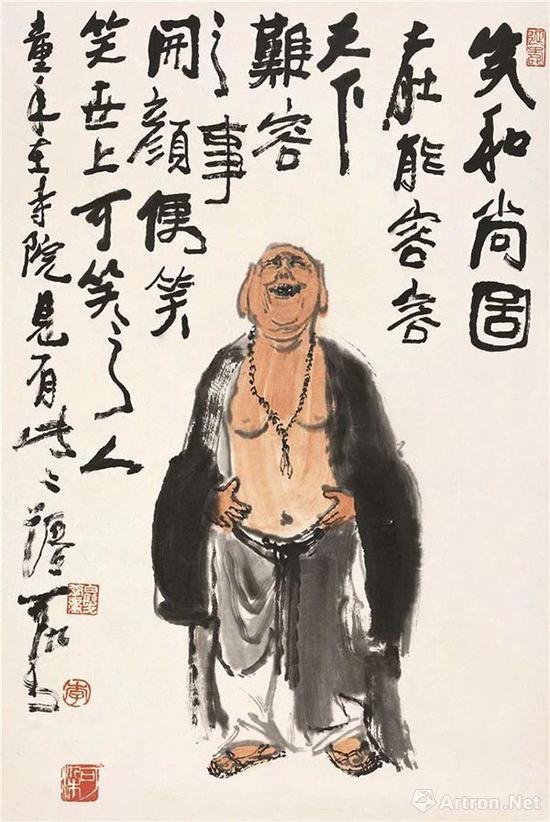 笑和尚圖
大肚能容容
天下
難容
之事
開顏便笑
笑世上可笑之人
童年在寺院見有此二語 可染
李
可染
Artron.Net